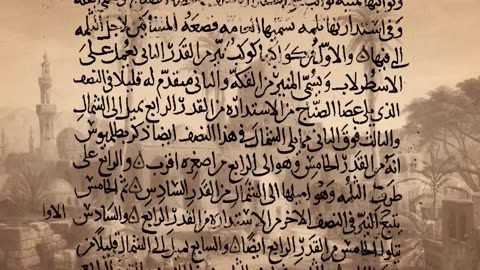 وفي استدارتها ثلمه تسميها العامه قصعه المساكين لاجل الثلمه
التي فيها ٥ والاول من كواكبه كوكب نير من القدر الثاني يعمل على
الاسطرلاب ويسمى المنير من الفكه ٥ والثاني متقدم له قليلا في النصف
الذي يلي عصا الصياح من الاستداره من القدر الرابع يميل الى الشمال
والثالث فوق الثاني مما يلي الشمال في هذا النصف ايضا ذكر بطلميوس
انه من القدر الخامس وهو الى الرابع من اصغره اقرب ٥ والرابع على
طرف الثلمه وهو اميلها الى الشمال من القدر السادس ٥ والخامس
يتبع النير في النصف الاخر من الاستداره من القدر الرابع ٥ والسادس
يتلو الخامس من القدر الرابع ايضا ٥ والسابع يميل الى الشمال قليلا من